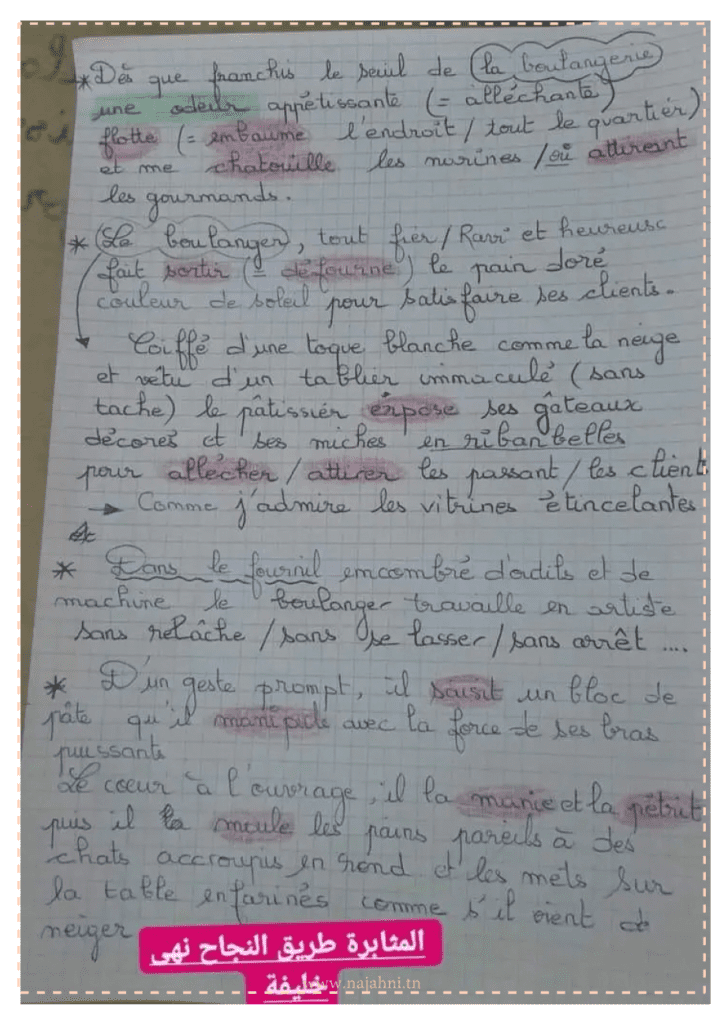 * Dès que franchis le seuil de la boulangerie
une odeur appétissante (= alléchante)
flotte (= embaume l'endroit / tout le quartier)
et me chatouille les narines / où attirent
les gourmands.
* Le boulanger, tout fier / Ravi et heureuse
fait sortir (= défourne) le pain doré
couleur de soleil pour satisfaire ses clients.
Coiffé d'une toque blanche comme la neige
et vêtu d'un tablier immaculé (sans
tache) le pâtissier expose ses gâteaux
décorés et ses miches en ribanbelles
pour allécher / attirer les passant / les client
→ Comme j'admire les vitrines étincelantes
* Dans le fournil encombré d'outils et de
machine le boulanger travaille en artiste
sans relâche / sans se lasser / sans arrêt ....
* D'un geste prompt, il saisit un bloc de
pâte qu'il manipule avec la force de ses bras
puissants
Le cœur à l'ouvrage, il la manie et la pétrit
puis il la moule les pains pareils à des
chats accroupis en rond et les mets sur
la table enfarinés comme s'il vient de
neiger
المثابرة طريق النجاح نهى
خليفة
www.najahni.tn